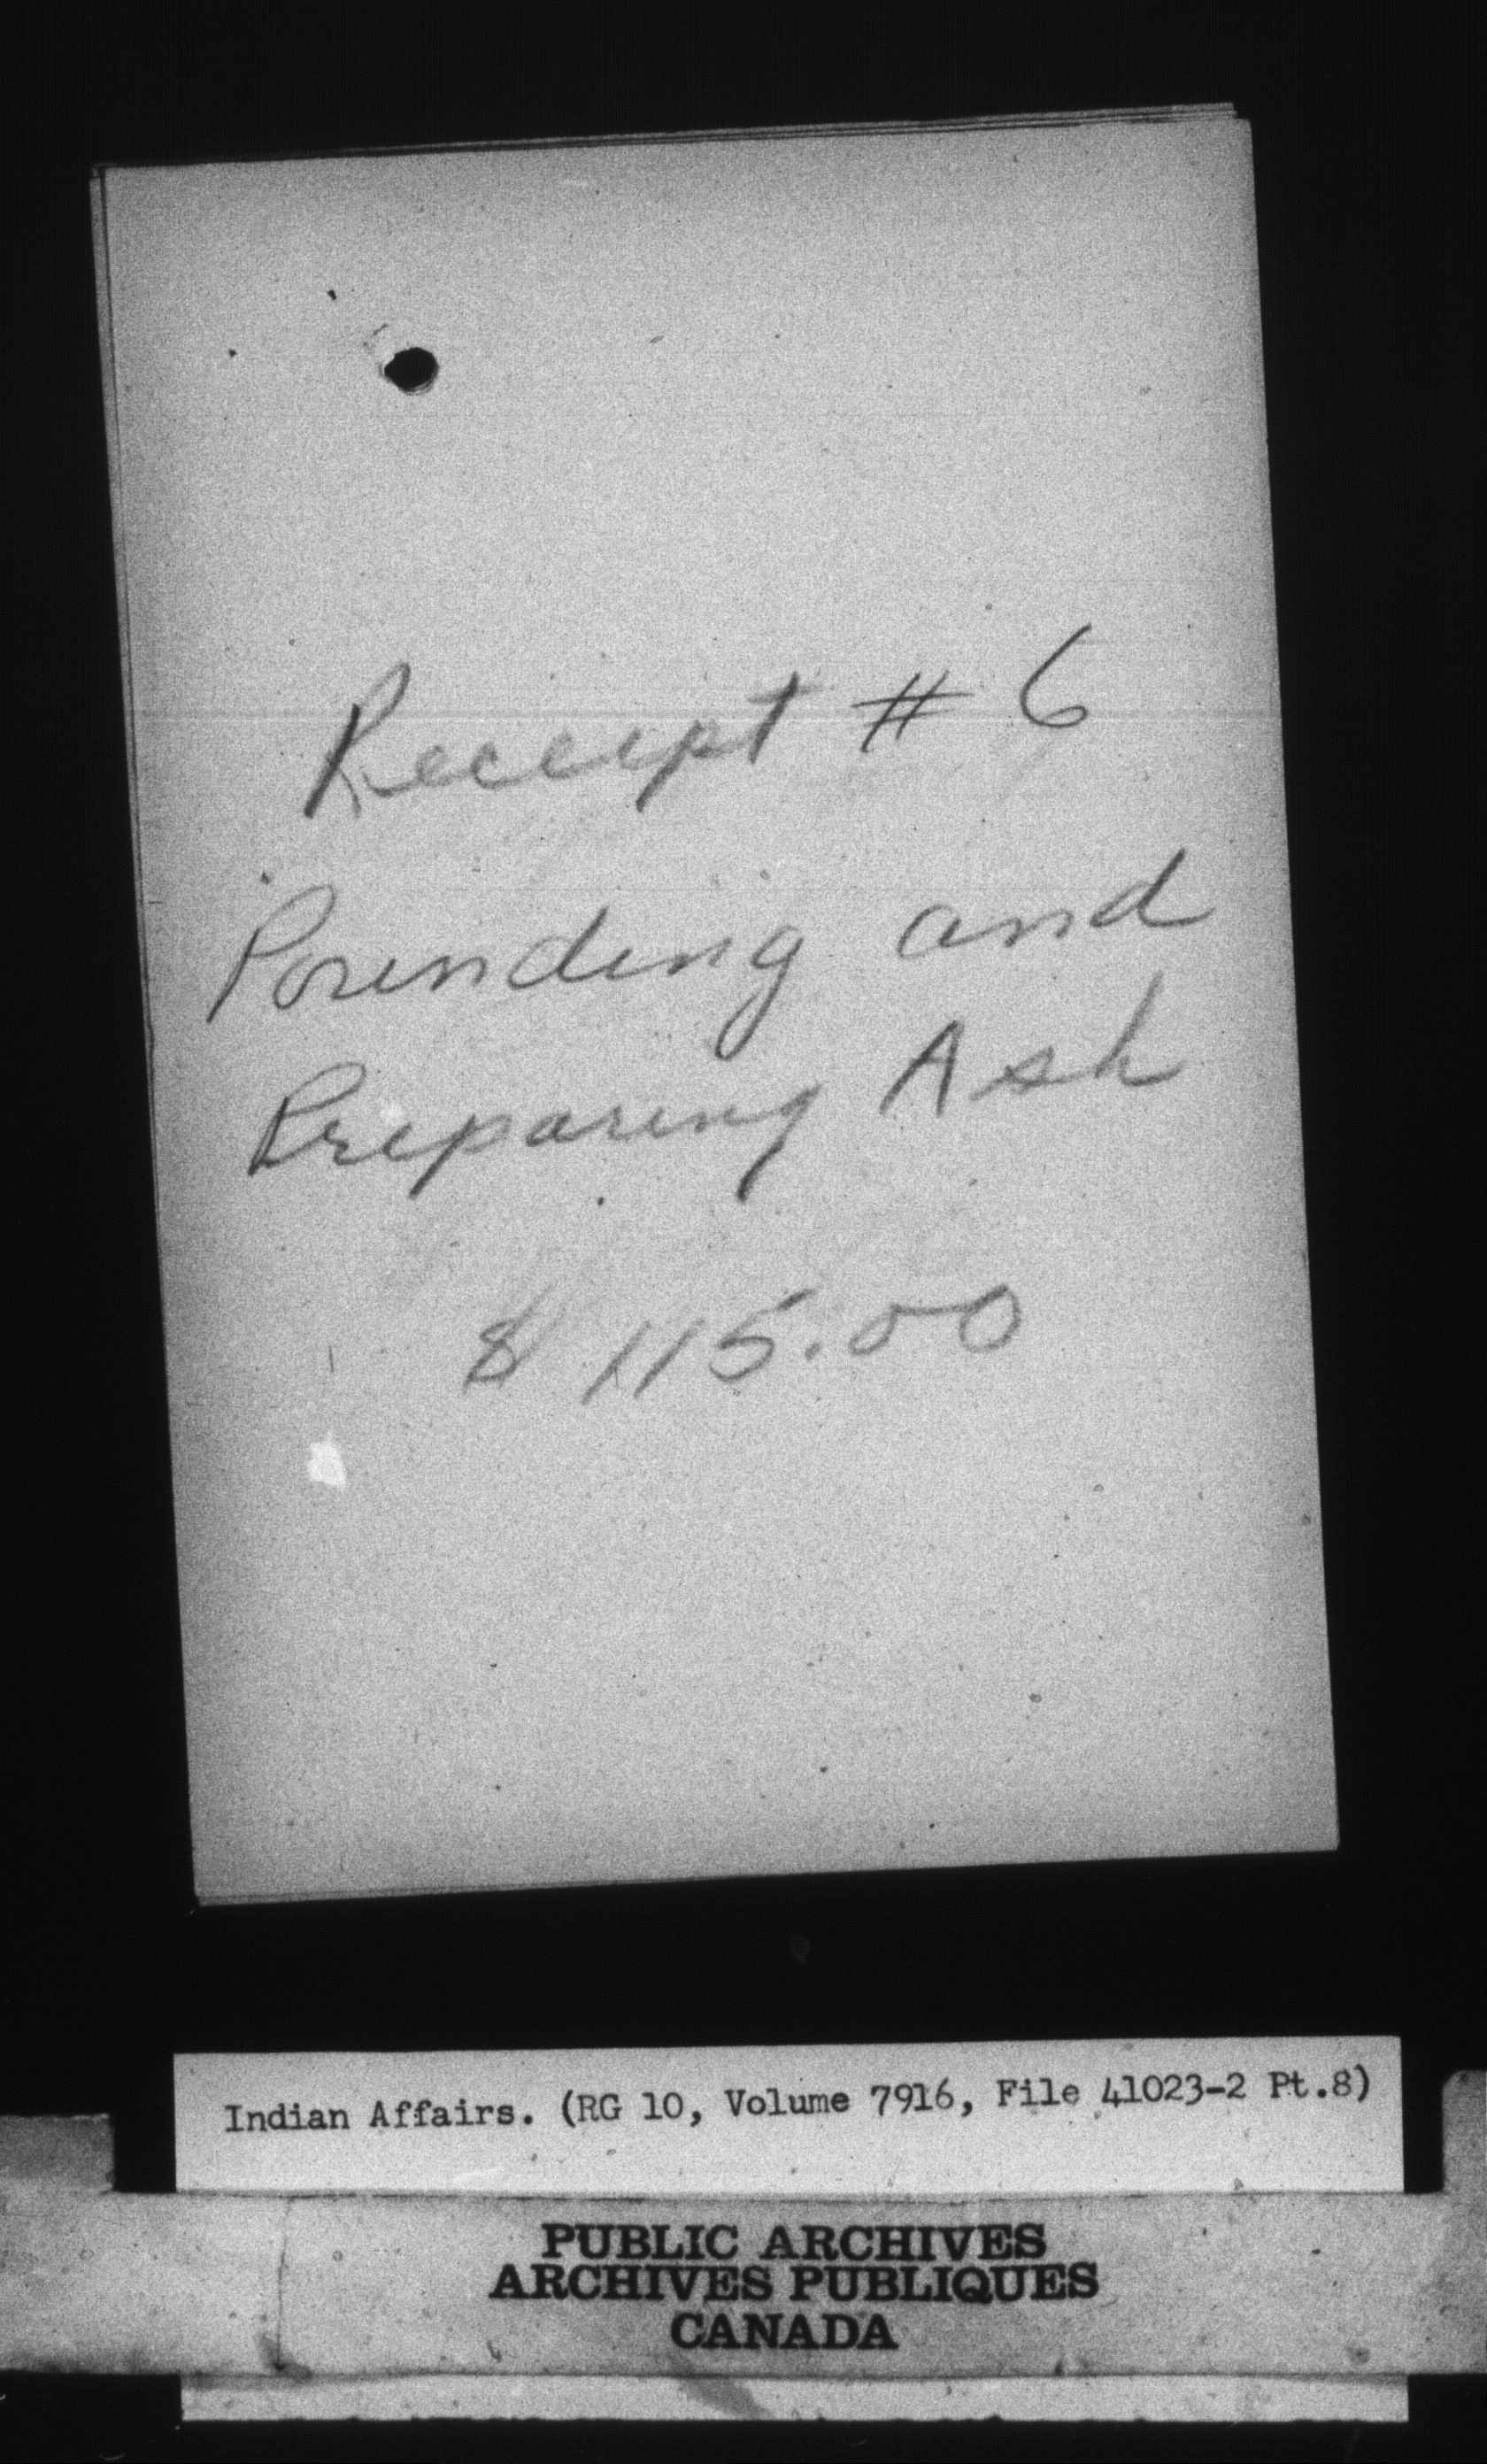 Receipt # 6
Pounding and
Preparing Ash
$ 115.00
Indian Affairs. (RG 10, Volume 7916, File 41023-2 Pt.8)
PUBLIC ARCHIVES
ARCHIVES PUBLIQUES
CANADA